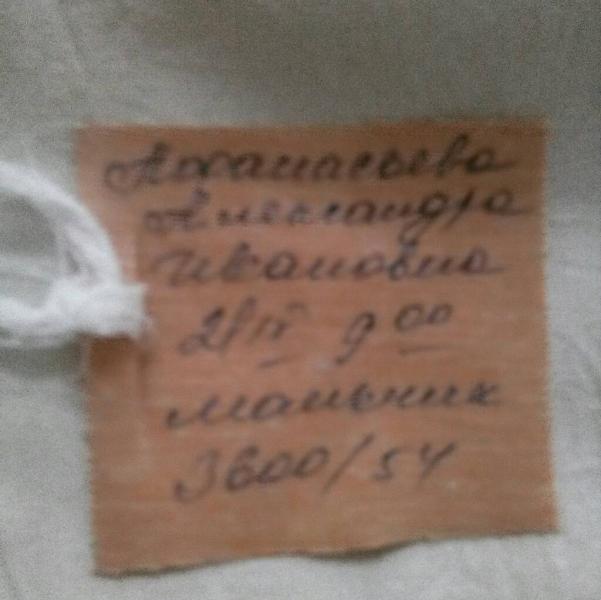 Афанасьева
Александра
Ивановна
21 IV 9 00
мальчик
3600/54